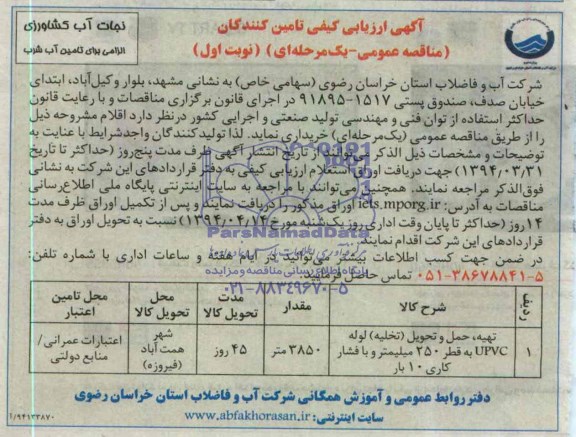 آگهی ارزیابی کیفی تامین کنندگان
(مناقصه عمومی-یک‌مرحله‌ای) (نوبت اول)
نجات آب کشاورزی
الزامی برای تامین آب شرب
شرکت آب و فاضلاب استان خراسان رضوی (سهامی خاص) به نشانی مشهد، بلوار وکیل‌آباد، ابتدای
خیابان صدف، صندوق پستی ۱۵۱۷-۹۱۸۹۵ در اجرای قانون برگزاری مناقصات و با رعایت قانون
حداکثر استفاده از توان فنی و مهندسی تولید صنعتی و اجرایی کشور درنظر دارد اقلام مشروحه ذیل
را از طریق مناقصه عمومی (یک‌مرحله‌ای) خریداری نماید. لذا تولیدکنندگان واجدشرایط با عنایت به
توضیحات و مشخصات ذیل الذکر می‌توانند از تاریخ انتشار آگهی ظرف مدت پنج‌روز (حداکثر تا تاریخ
۱۳۹۴/۰۳/۳۱) جهت دریافت اوراق استعلام ارزیابی کیفی به دفتر قراردادهای این شرکت به نشانی
فوق‌الذکر مراجعه نمایند. همچنین می‌توانند با مراجعه به سایت اینترنتی پایگاه ملی اطلاع‌رسانی
مناقصات به آدرس: iets.mporg.ir اوراق مذکور را دریافت نمایند و پس از تکمیل اوراق ظرف مدت
۱۴ روز (حداکثر تا پایان وقت اداری روز یکشنبه مورخ ۱۳۹۴/۰۴/۱۴) نسبت به تحویل اوراق به دفتر
قراردادهای این شرکت اقدام نمایند.
در ضمن جهت کسب اطلاعات بیشتر می‌توانید در ایام هفته و ساعات اداری با شماره تلفن:
۵-۳۸۶۷۸۸۴۱-۰۵۱ تماس حاصل فرمایید.
ParsNamadData
پایگاه اطلاع رسانی مناقصه و مزایده
۰۲۱-۸۸۳۴۹۶۷۰-۵
ردیف شرح کالا مقدار مدت تحویل کالا محل تحویل کالا محل تامین اعتبار
۱ تهیه، حمل و تحویل (تخلیه) لوله UPVC به قطر ۲۵۰ میلیمتر و با فشار کاری ۱۰ بار ۳۸۵۰ متر ۴۵ روز شهر همت آباد (فیروزه) اعتبارات عمرانی/ منابع دولتی
دفتر روابط عمومی و آموزش همگانی شرکت آب و فاضلاب استان خراسان رضوی
سایت اینترنتی: www.abfakhorasan.ir
۹۴۱۳۳۸۷۰/۱